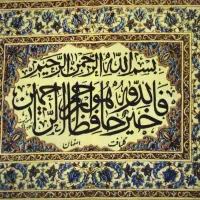 بسم الله الرحمن الرحیم
فالله خیر حافظا وهو ارحم الراحمین